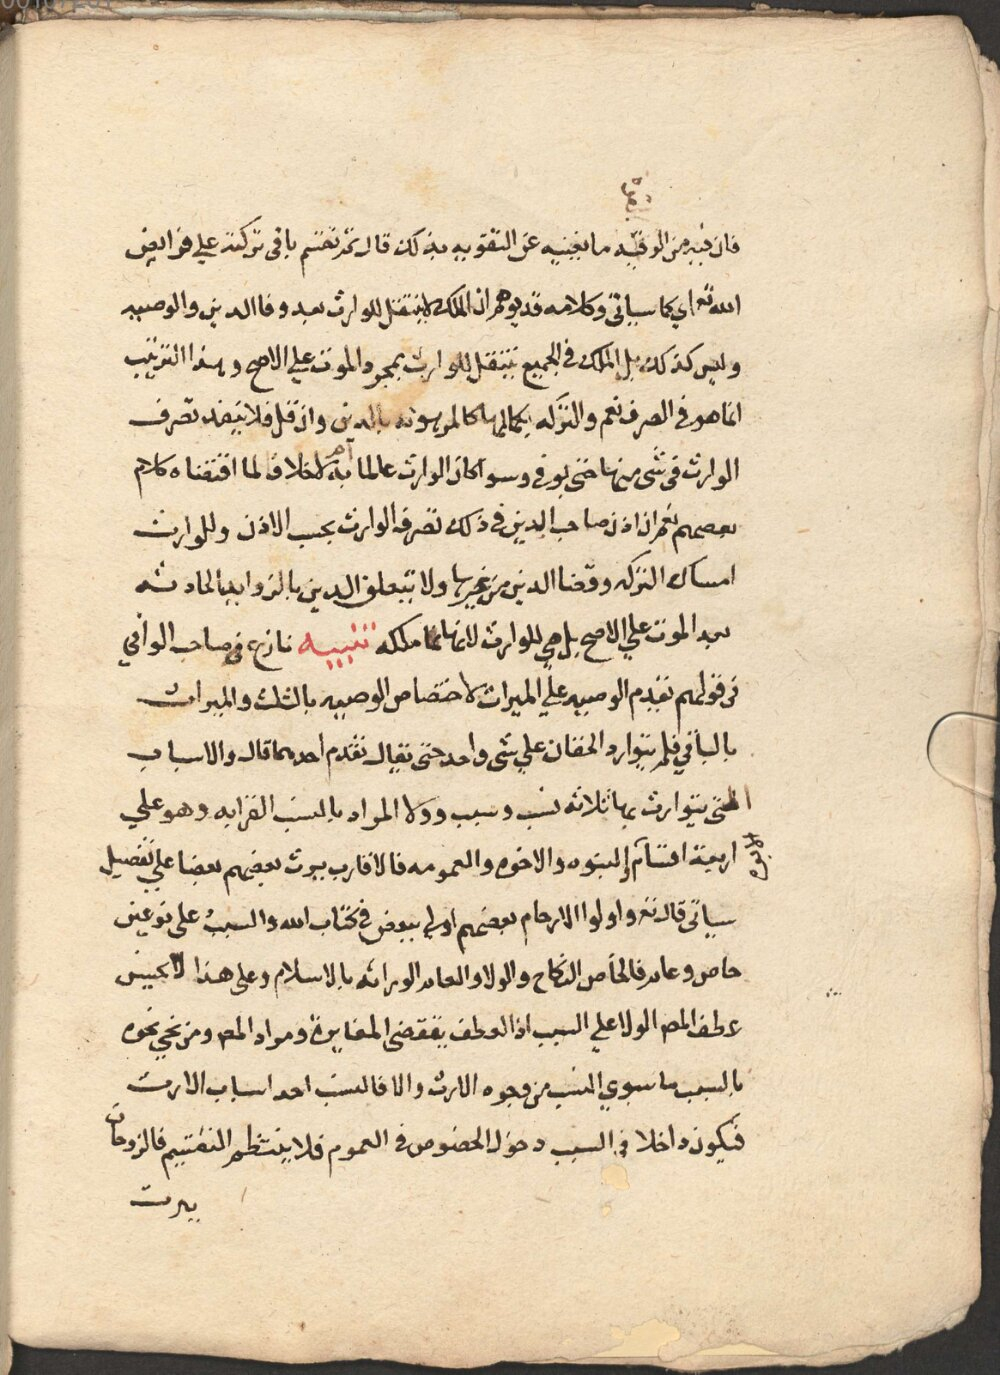 فان فيه من الوقيه ما يغنيه عن التقويه بذلك قال ثم تقسم باقي تركته علي فرايض
الله تع اي كما سياتي وكلامه قد يوهم ان الملك لا ينتقل للوارث بعد وفا الدين والوصيه
وليس كذلك بل الملك في الجميع ينتقل للوارث بمجرد الموت علي الاصح وهذا الترتيب
انما هو في الصرف نعم والتركه بكمالها كالمرهونه بالدين وان قل فلا ينفذ تصرف
الوارث في شي منها حتي يوفي وسوا كان الوارث عالما به ام لا خلافا لما اقتضاه كلام
بعضهم نعم ان اذن صاحب الدين في ذلك تصرف الوارث بحسب الاذن وللوارث
امساك التركه وقضا الدين من غيرها ولا يتعلق الدين بالزوايد الحادثه
بعد الموت علي الاصح بل هي للوارث لانها نما ملكه تنبيه نازع في صاحب الوافي
في قولهم تقدم الوصيه علي الميراث لاختصاص الوصيه بالثلث والميراث
بالباقي فلم يتوارد الحقان علي شي واحد حتي يقال تقدم احدهما قال والاسباب
التي يتوارث بها ثلاثه نسب وسبب وولا المراد بالنسب القرابه وهو علي
اربعة اقسام البنوه والاخوه والعمومه فالاقارب يرث بعضهم بعضا علي تفصيل
الابوه
سياتي قال تع واولوا الارحام بعضهم اولي ببعض في كتاب الله والسبب علي نوعين
خاص وعام فالخاص النكاح والولا والعام الوراثه بالاسلام وعلي هذا لا يحسن
عطف المص الولا علي السبب اذ العطف يقتضي المغايرة ومراد المص ومن نحي نحوه
بالسبب ما سوي النسب من وجوه الارث والا فالنسب احد اسباب الارث
فيكون داخلا في السبب دخول الخصوص في العموم فلا ينتظم التقسيم فالزوجان
يرث